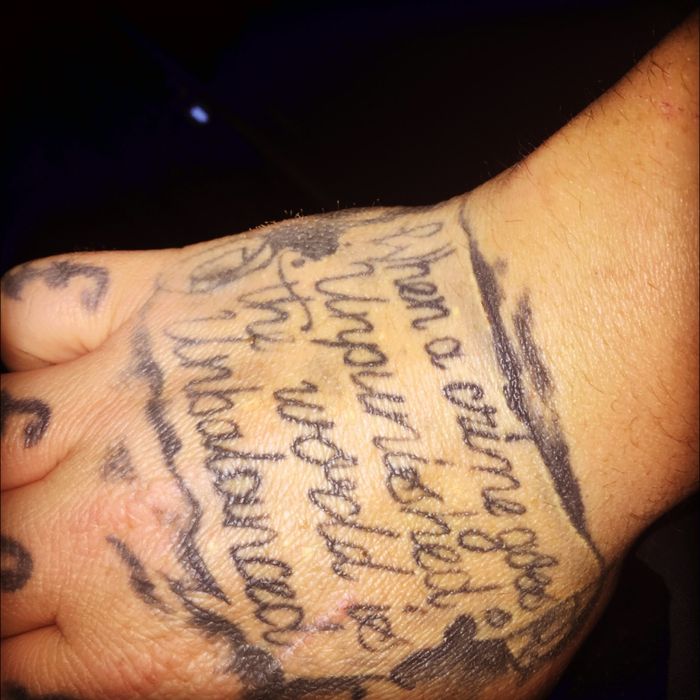 When a crime goes
Unpunished
the world is
Unbalanced